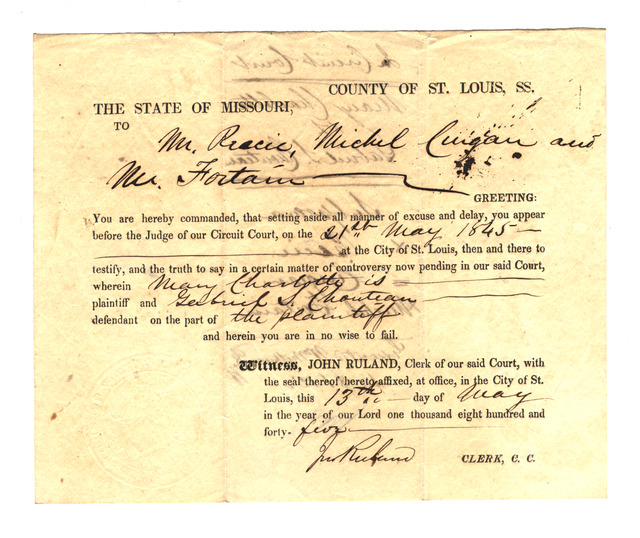 COUNTY OF ST. LOUIS, SS.
THE STATE OF MISSOURI,
TO
Mr. Michel and
Mr. Fortain
GREETING:
You are hereby commanded, that setting aside all manner of excuse and delay, you appear
before the Judge of our Circuit Court, on the 21st May 1845
at the City of St. Louis, then and there to
testify, and the truth to say in a certain matter of controversy now pending in our said Court,
wherein Mary Charlotte is
plaintiff and Gabriel S. Chouteau
defendant on the part of the plaintiff
and herein you are in no wise to fail.
Witness, JOHN RULAND, Clerk of our said Court, with
the seal thereof hereto affixed, at office, in the City of St.
Louis, this 13th day of May
in the year of our Lord one thousand eight hundred and
forty-five
Jno Ruland
CLERK, C. C.